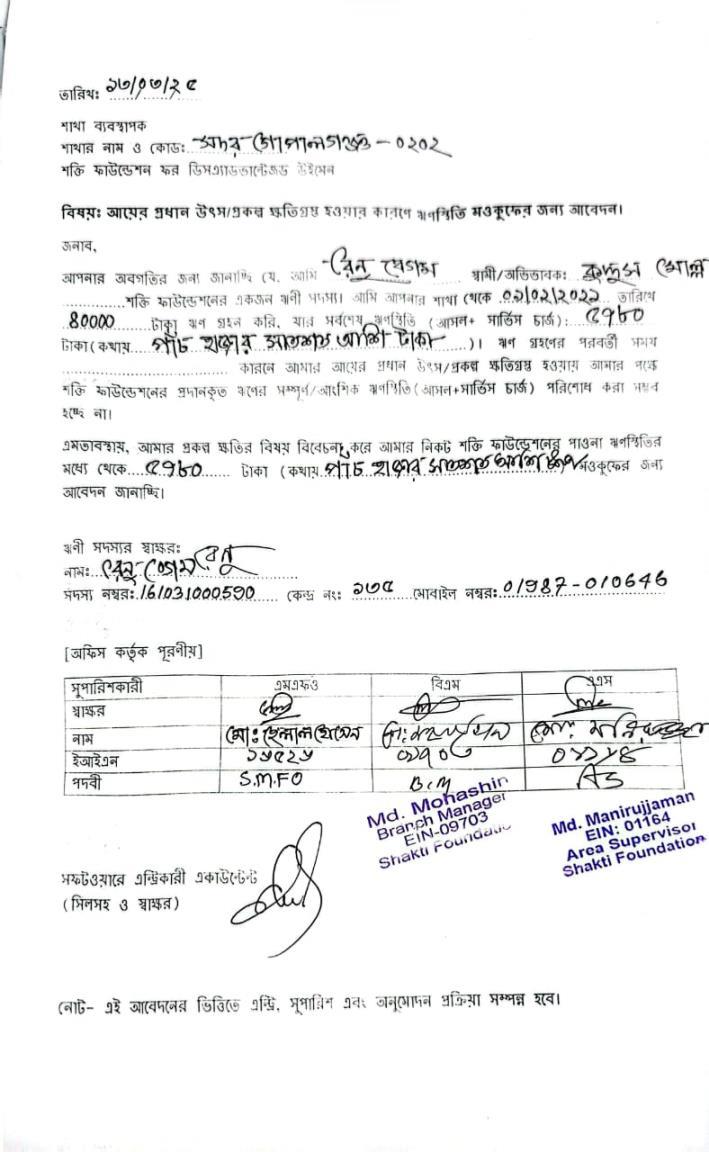 তারিখঃ ১৩/০৩/২৫
শাখা ব্যবস্থাপক
শাখার নাম ও কোডঃ সদর গোপালগঞ্জ - ০২০২
শক্তি ফাউন্ডেশন ফর ডিসএ্যাডভান্টেজড উইমেন
বিষয়ঃ আয়ের প্রধান উৎস/প্রকল্প ক্ষতিগ্রস্থ হওয়ার কারণে ঋণস্থিতি মওকুফের জন্য আবেদন।
জনাব,
আপনার অবগতির জন্য জানাচ্ছি যে, আমি রেনু বেগম স্বামী/অভিভাবকঃ কুদ্দুস মোল্লা
শক্তি ফাউন্ডেশনের একজন ঋণী সদস্য। আমি আপনার শাখা থেকে ০২/০২/২০২২ তারিখে
80000 টাকা ঋণ গ্রহন করি, যার সর্বশেষ ঋণস্থিতি (আসল+ সার্ভিস চার্জ): ৫৭৮০
টাকা (কথায় পাঁচ হাজার সাতশত আশি টাকা )। ঋণ গ্রহণের পরবর্তী সময়
কারনে আমার আয়ের প্রধান উৎস/প্রকল্প ক্ষতিগ্রস্থ হওয়ায় আমার পক্ষে
শক্তি ফাউন্ডেশনের প্রদানকৃত ঋণের সম্পূর্ণ/আংশিক ঋণস্থিতি (আসল+সার্ভিস চার্জ) পরিশোধ করা সম্ভব
হচ্ছে না।
এমতাবস্থায়, আমার প্রকল্প ক্ষতির বিষয় বিবেচনা করে আমার নিকট শক্তি ফাউন্ডেশনের পাওনা ঋণস্থিতির
মধ্যে থেকে ৫৭৮০ টাকা (কথায় পাঁচ হাজার সাতশত আশি টাকা মওকুফের জন্য
আবেদন জানাচ্ছি।
ঋণী সদস্যর স্বাক্ষরঃ
নামঃ রেনু বেগম রেনু
সদস্য নম্বরঃ 161031000590 কেন্দ্র নং: ১৩৫ মোবাইল নম্বরঃ 01987-010646
[অফিস কর্তৃক পূরণীয়]
সুপারিশকারী এমএফও বিএম এএস
স্বাক্ষর
নাম মোঃ হেলাল হোসেন
ইআইএন
পদবী S.M.FO B.M AS
Md. Mohashin
Branch Manager
EIN-09703
Shakti Foundatio
Md. Manirujjaman
EIN: 01164
Area Supervisor
Shakti Foundation
সফটওয়ারে এন্ট্রিকারী একাউন্টেন্ট
(সিলসহ ও স্বাক্ষর)
নোট- এই আবেদনের ভিত্তিতে এন্ট্রি, সুপারিশ এবং অনুমোদন প্রক্রিয়া সম্পন্ন হবে।